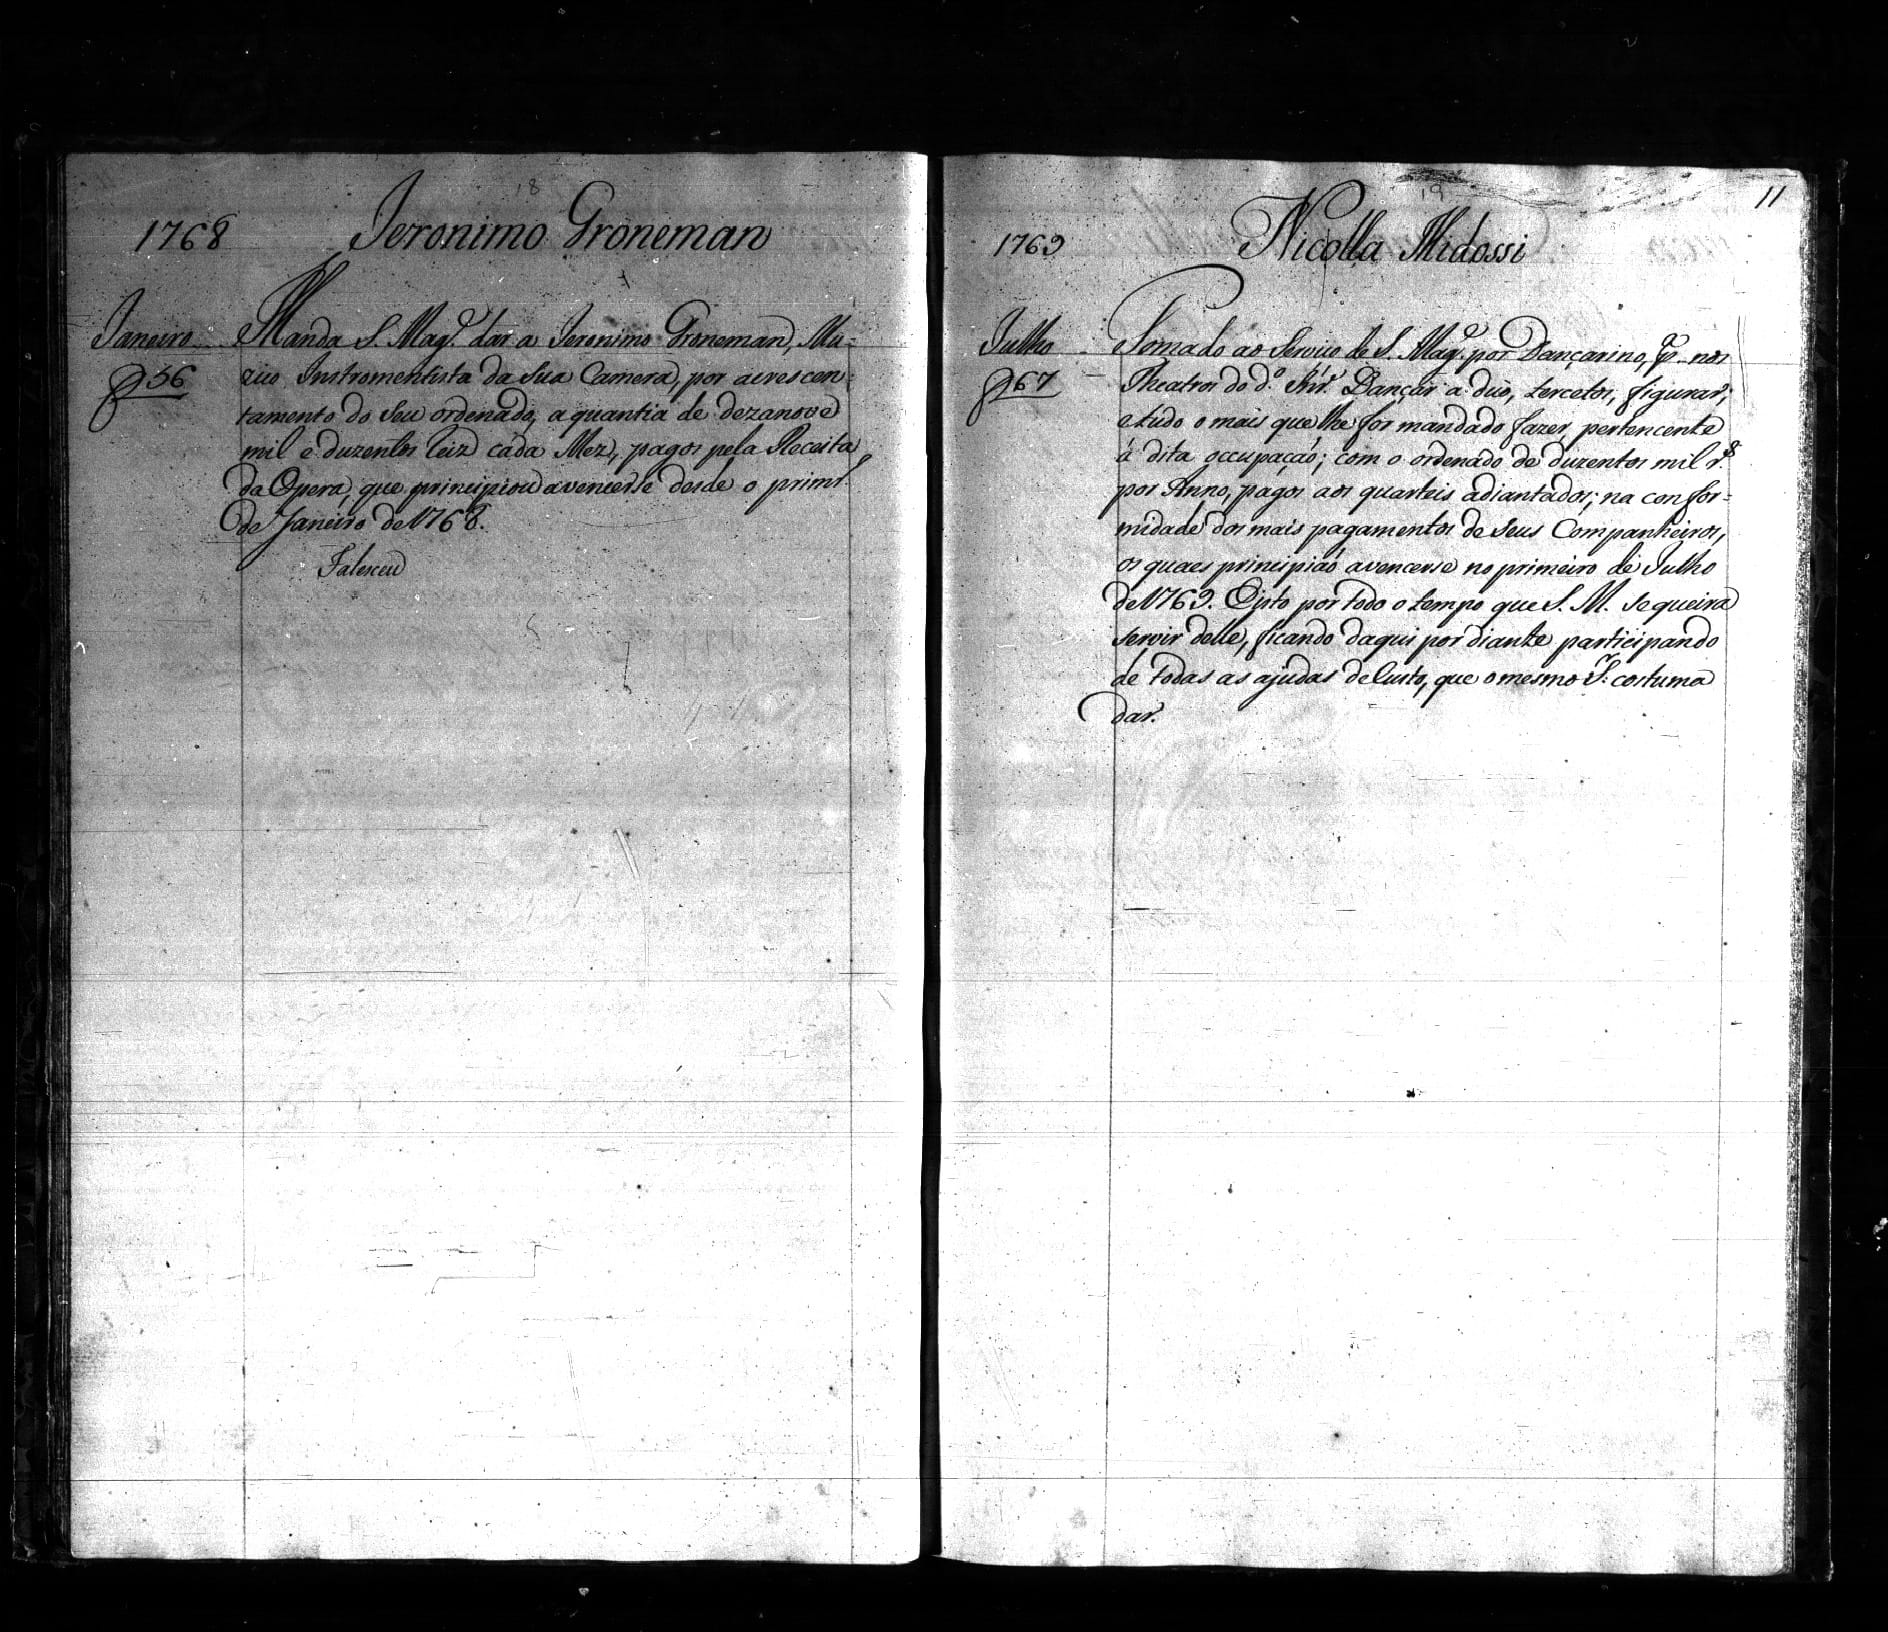 18
1768 Jeronimo Groneman
Janeiro Manda S. Magᵉ. dar a Jeronimo Groneman, Mu-
56 zico Instromentista da Sua Camera, por acrescen-
tamento do seu ordenado, a quantia de dezanove
mil e duzentos reiz cada Mez, pagos pela Receita
da Opera, que principiou a vencerse desde o primrº.
de Janeiro de 1768.
Faleceu
19 11
1769 Nicolla Midossi
Julho Tomado ao Serviço de S. Magᵉ. por Dançarino, pª. nos
67 Theatros do dº. Snr̃. Dançar a duo, tercetos, figurar,
e tudo o mais que lhe for mandado fazer, pertencente
á dita occupação; com o ordenado de duzentos mil rˢ
por Anno, pagos aos quarteis adiantados; na confor-
midade dos mais pagamentos de seus Companheiros,
os quaes principiáõ a vencerse no primeiro de Julho
de 1769. Isto por todo o tempo que S. M. se queira
servir delle, ficando daqui por diante participando
de todas as ajudas de Custo, que o mesmo Sʳ. costuma
dar.